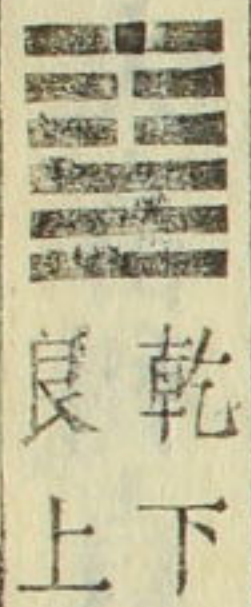 乾下
艮上